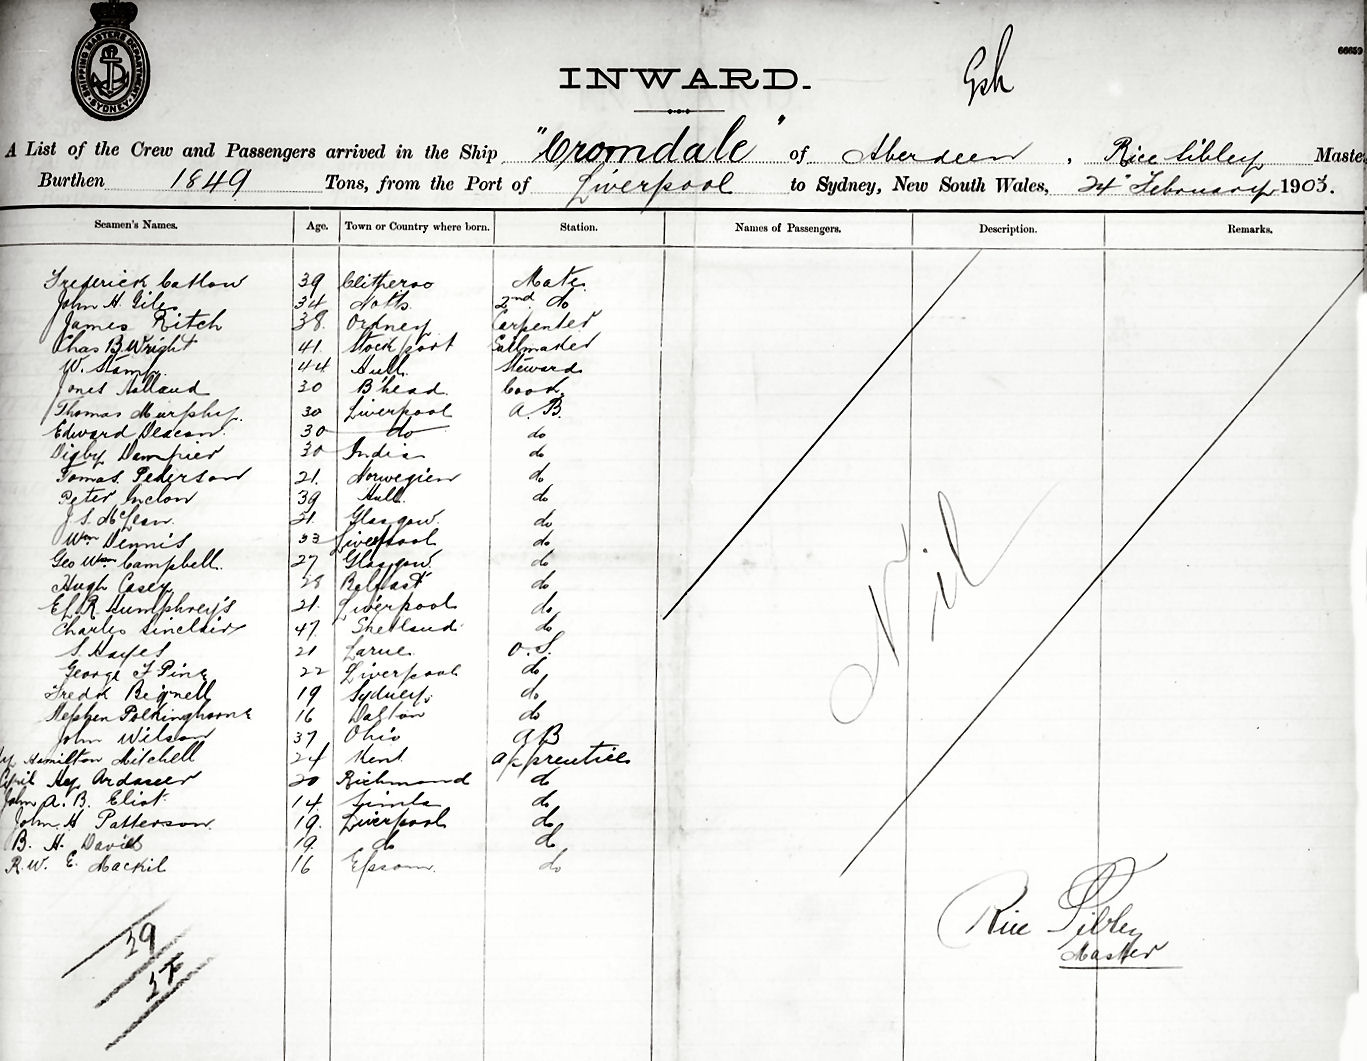 SHIPPING MASTERS DEPARTMENT SYDNEY
66659
INWARD.
A List of the Crew and Passengers arrived in the Ship "Cromdale" of Aberdeen, Rice Sibley Master
Burthen 1849 Tons, from the Port of Liverpool to Sydney, New South Wales, 24 February 1903.
Seamen's Names. Age. Town or Country where born. Station. Names of Passengers. Description. Remarks.
Frederick Catlow 39 Clitheroe Mate
John H. Giles 34 Notts 2nd do
James Ritch 38 Orkney Carpenter
Chas B. Wright 41 Stockport Sailmaker
W. 44 Hull Steward
Jones Holland 30 B'head Cook
Thomas Murphy 30 Liverpool A.B.
Edward Deacon 30 do do
Digby Dampier 30 India do
Tomas Pederson 21 Norwegien do
Peter 39 Hull do
J. S. McLean Glasgow do
Wm Dennis 33 Liverpool do
Geo Wm Campbell 27 Glasgow do
Hugh Casey 28 Belfast do
R Humphrey's 21 Liverpool do
Charles Sinclair 47 Shetland do
S. Hayes 21 Larne O.S.
George F Pine 22 Liverpool do
Fredk Bignell 19 Sydney do
Stephen Polkinghorne 16 Dalton do
John Wilson 37 Ohio AB
Hamilton Mitchell 24 Kent Apprentice
Hy Ardaseer 20 Richmond do
John A. B. Eliot 14 Simla do
John H Patterson 19 Liverpool do
B. H. David 19 do do
R. W. E. Mackil 16 Epsom do
Nil
Rice Sibley
Master